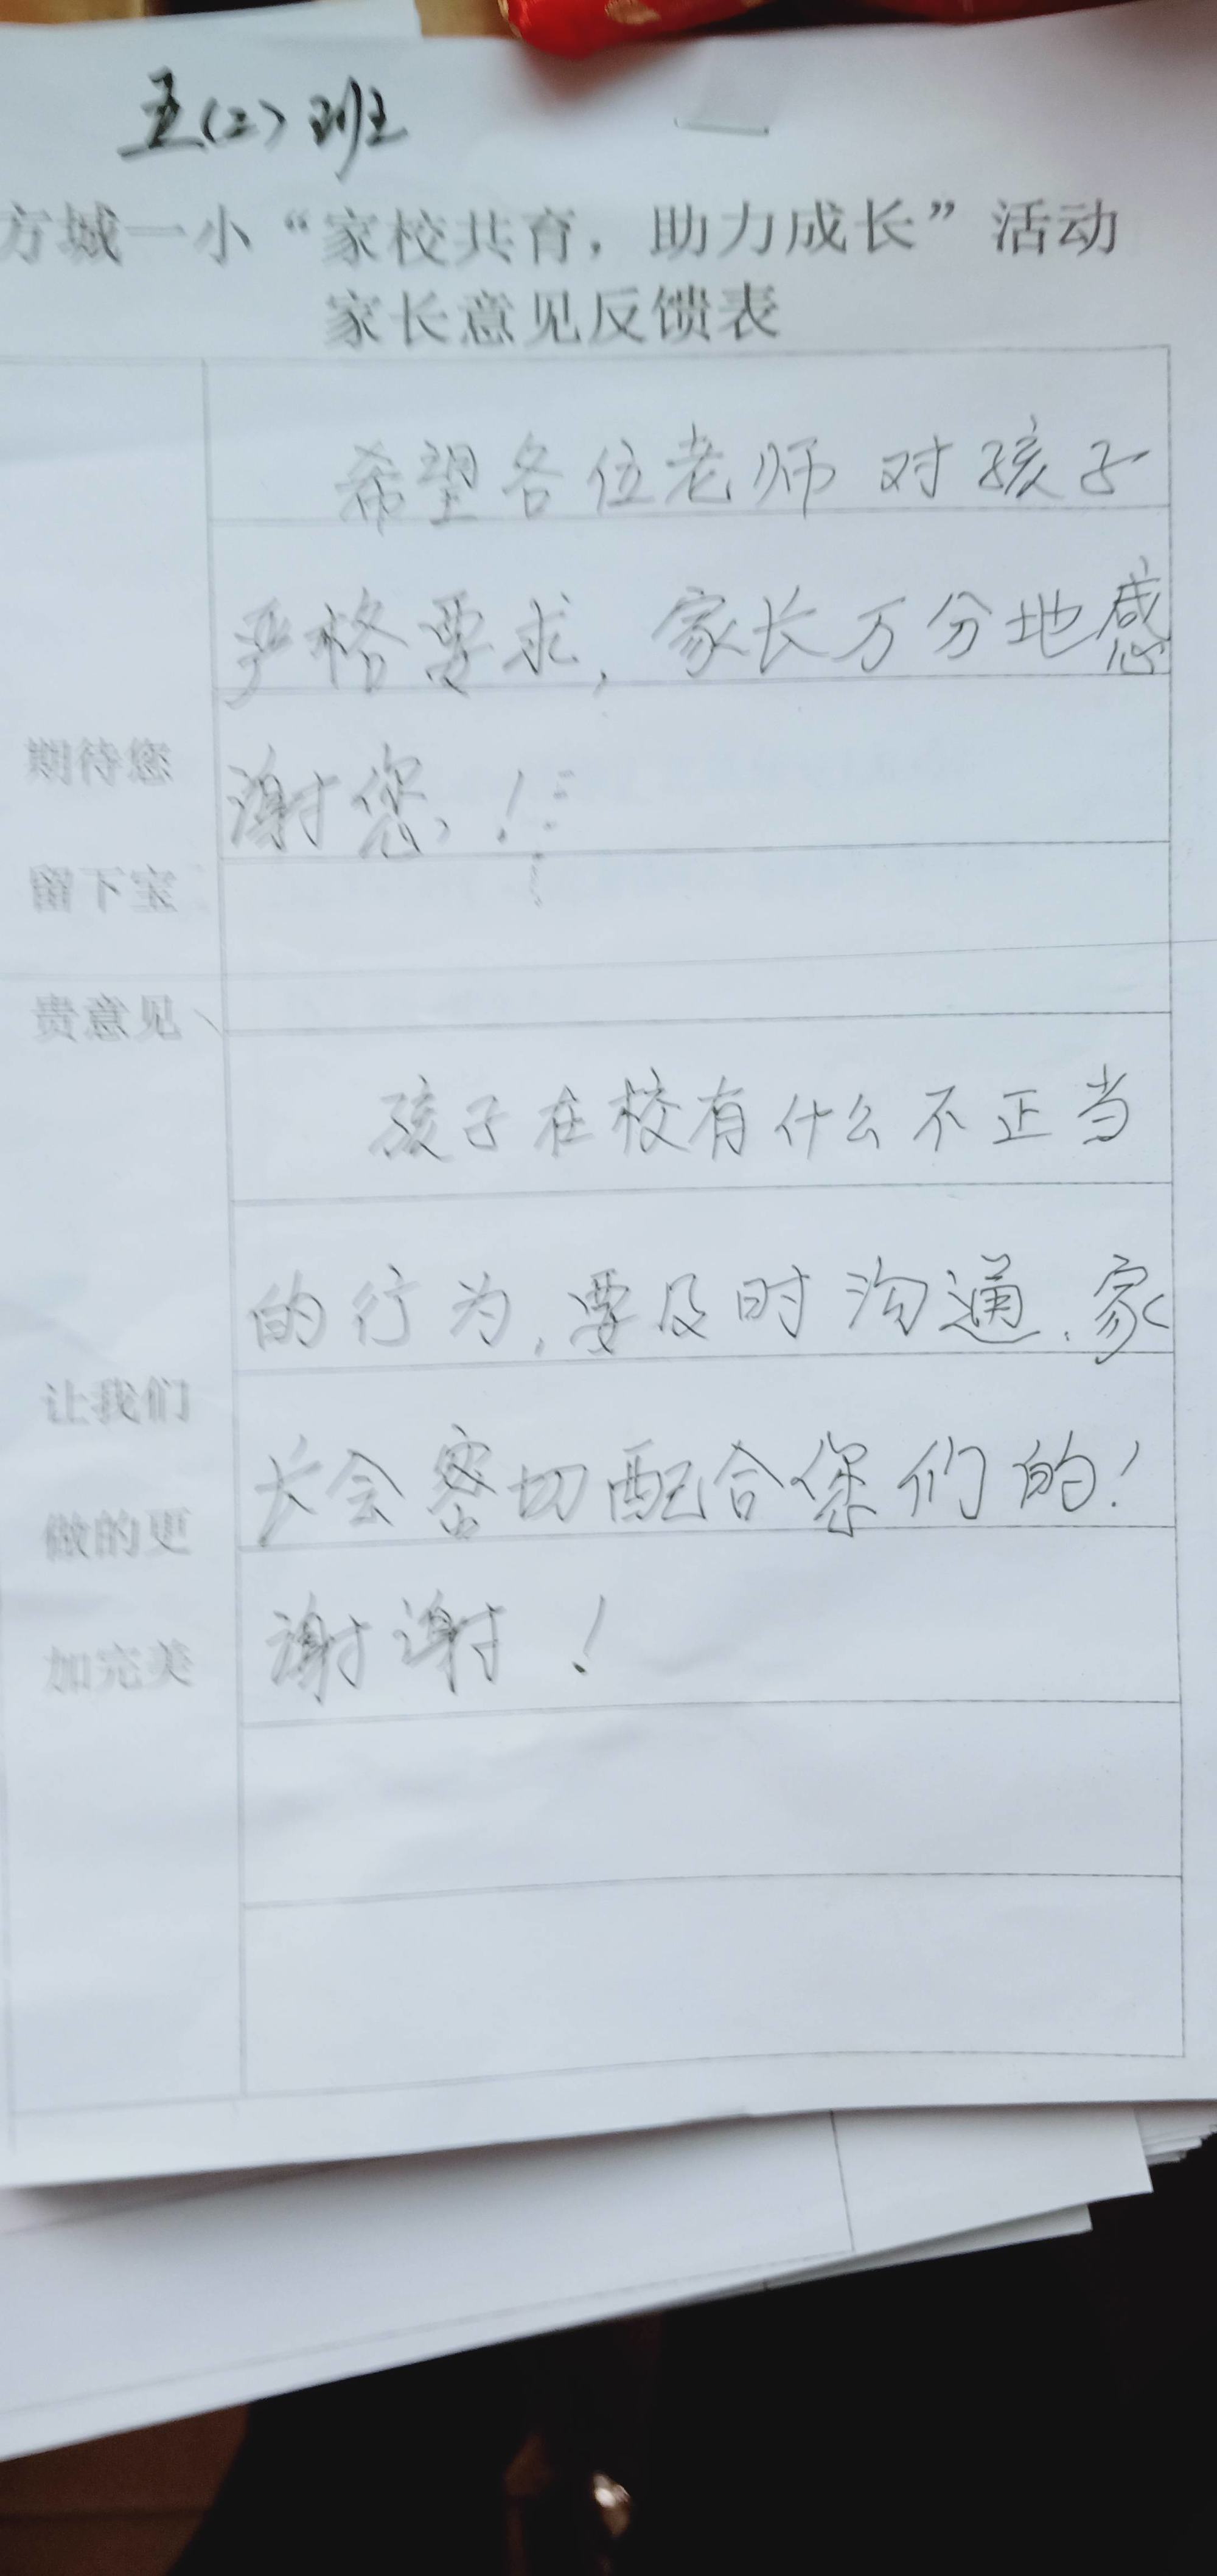 五(2)班
方城一小“家校共育，助力成长”活动
家长意见反馈表
期待您
留下宝
贵意见
让我们
做的更
加完美
希望各位老师对孩子
严格要求，家长万分地感
谢您！
孩子在校有什么不正当
的行为，要及时沟通，家
长会密切配合您们的！
谢谢！